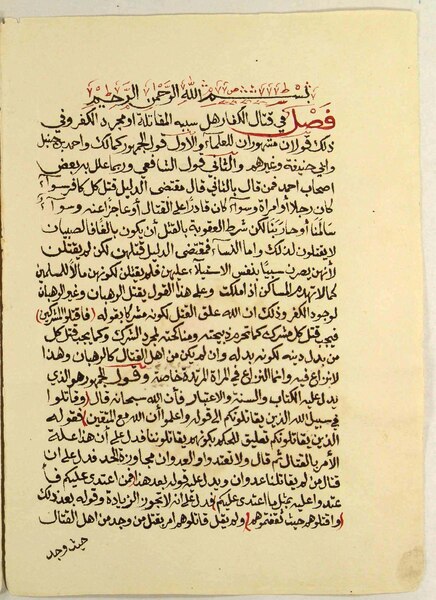 بسم الله الرحمن الرحيم
فصل في قتال الكفار هل سببه المقاتلة او مجرد الكفر وفي
ذلك قولان مشهوران للعلماء والأول قول الجمهور كمالك واحمد بن حنبل
وابي حنيفة وغيرهم والثاني قول الشافعي وربما علل به بعض
اصحاب احمد فمن قال بالثاني قال مقتضى الدليل قتل كل كافر سواء
كان رجلا أو امراة وسواء كان قادرا على القتال أو عاجزا عنه وسواء
سالمنا أو حاربنا لكن شرط العقوبة بالقتل أن يكون بالغا فالصبيان
لا يقتلون لذلك واما النساء فمقتضى الدليل قتلهن لكن لم يقتلن
لأنهن يصرن سبيا بنفس الاستيلاء عليهن فلم يقتلن لكونهن مالا للمسلمين
كما لا تهدم المساكن اذا ملكت وعلى هذا القول يقتل الرهبان وغير الرهبان
لوجود الكفر وذلك ان الله علق القتل لكونه مشركا بقوله (فاقتلوا المشركين)
فيجب قتل كل مشرك كما تحرم ذبيحته ومناكحته لمجرد الشرك وكما يجب قتل كل
من بدل دينه لكونه بدله وان لم يكن من اهل القتال كالرهبان وهذا
لا نزاع فيه وانما النزاع في المراة المرتدة خاصة وقول الجمهور هو الذي
يدل عليه الكتاب والسنة والاعتبار فان الله سبحانه قال (وقاتلوا
في سبيل الله الذين يقاتلونكم الى قوله واعلموا أن الله مع المتقين) فقوله
الذين يقاتلونكم تعليق للحكم بكونهم يقاتلوننا فدل على أن هذا علة
الأمر بالقتال ثم قال ولا تعتدوا والعدوان مجاوزة الحد فدل على ان
قتال من لم يقاتلنا عدوان ويدل عليه قوله بعد هذا فمن اعتدى عليكم فا
عتدوا عليه بمثل ما اعتدى عليكم فدل على انه لا تجوز الزيادة وقوله بعد ذلك
(واقتلوهم حيث ثقفتموهم) ولم يقل قاتلوهم امر بقتل من وجد من اهل القتال
حيث وجد